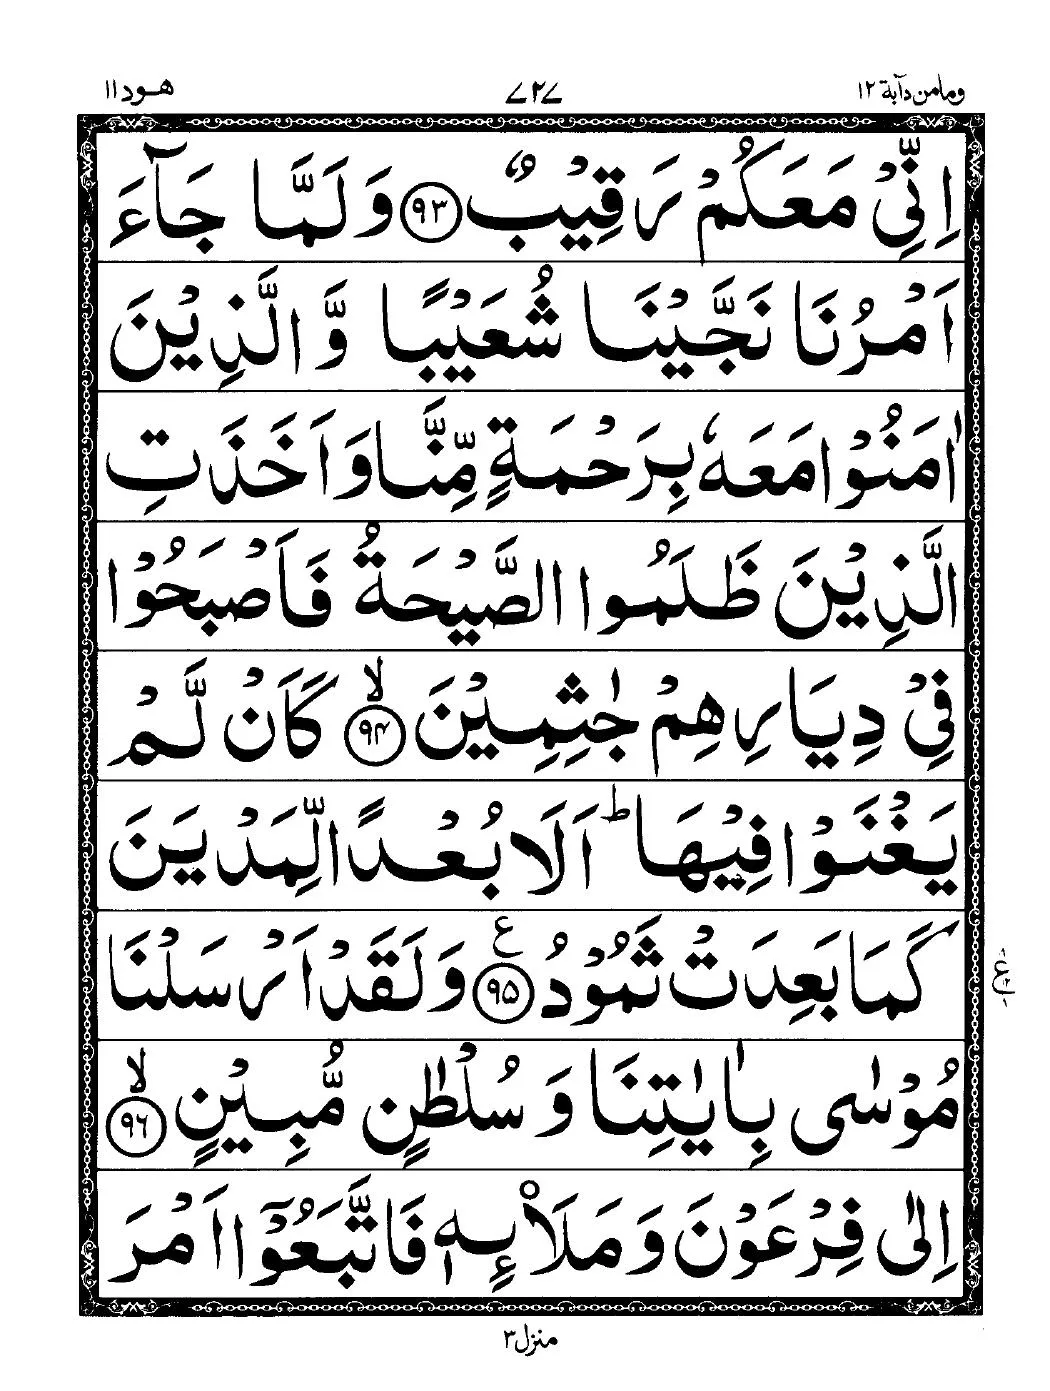 ومامن دآبة ١٢
٧٢٧
هود ١١
اِنِّىْ مَعَكُمْ رَقِيْبٌ ﴿۹۳﴾ وَلَمَّا جَآءَ
اَمْرُنَا نَجَّيْنَا شُعَيْبًا وَّالَّذِيْنَ
اٰمَنُوْا مَعَهٗ بِرَحْمَةٍ مِّنَّا وَاَخَذَتِ
الَّذِيْنَ ظَلَمُوا الصَّيْحَةُ فَاَصْبَحُوْا
فِىْ دِيَارِهِمْ جٰثِمِيْنَ ۙ﴿۹۴﴾ كَاَنْ لَّمْ
يَغْنَوْا فِيْهَا ؕ اَلَا بُعْدًا لِّمَدْيَنَ
كَمَا بَعِدَتْ ثَمُوْدُ ﴿۹۵﴾ ع وَلَقَدْ اَرْسَلْنَا
مُوْسٰى بِاٰيٰتِنَا وَسُلْطٰنٍ مُّبِيْنٍ ۙ﴿۹۶﴾
اِلٰى فِرْعَوْنَ وَمَلَا۟ئِهٖ فَاتَّبَعُوْۤا اَمْرَ
منزل ٣